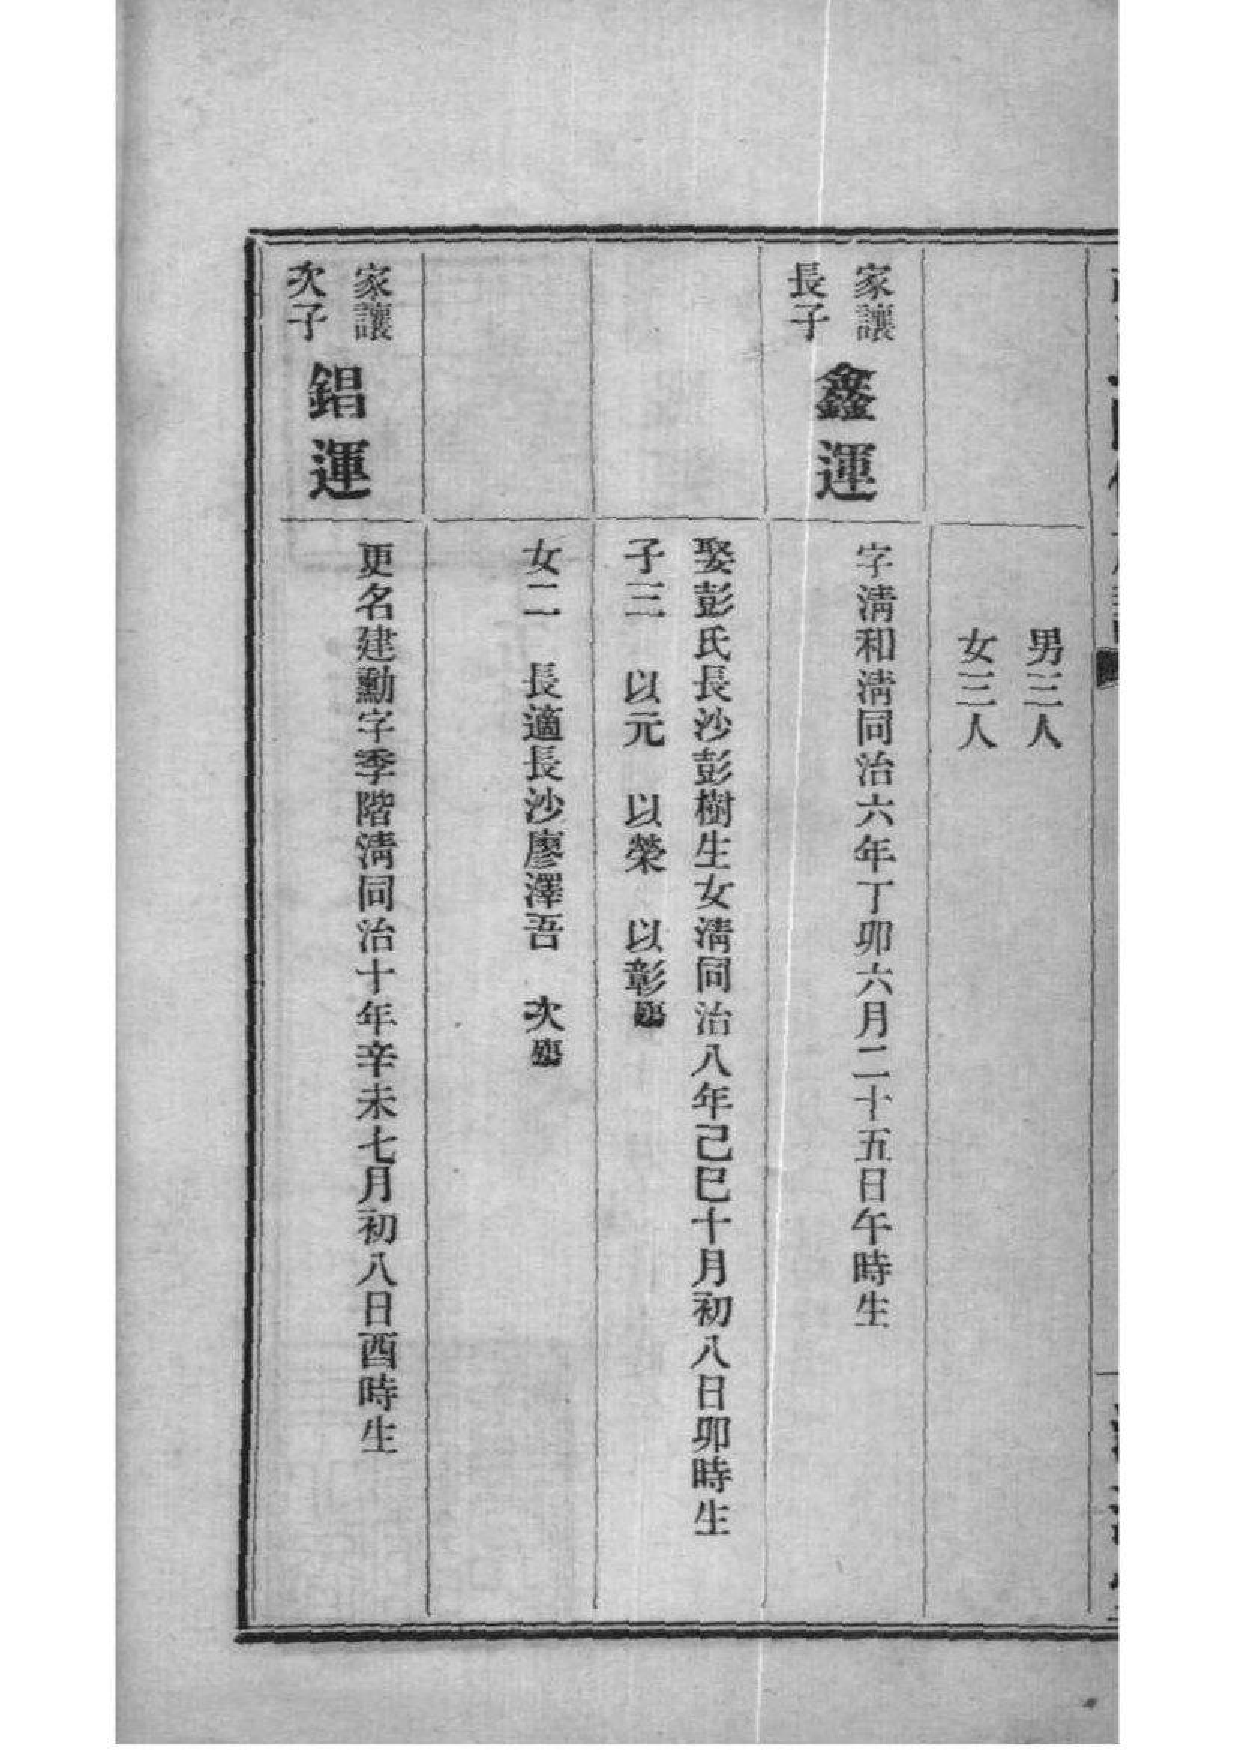 男三人
女三人
家讓
長子
鑫運
字淸和淸同治六年丁卯六月二十五日午時生
娶彭氏長沙彭樹生女淸同治八年己巳十月初八日卯時生
子三　以元　以榮　以彰殤
女二　長適長沙廖澤吾　次殤
家讓
次子
錩運
更名建勳字季階淸同治十年辛未七月初八日酉時生